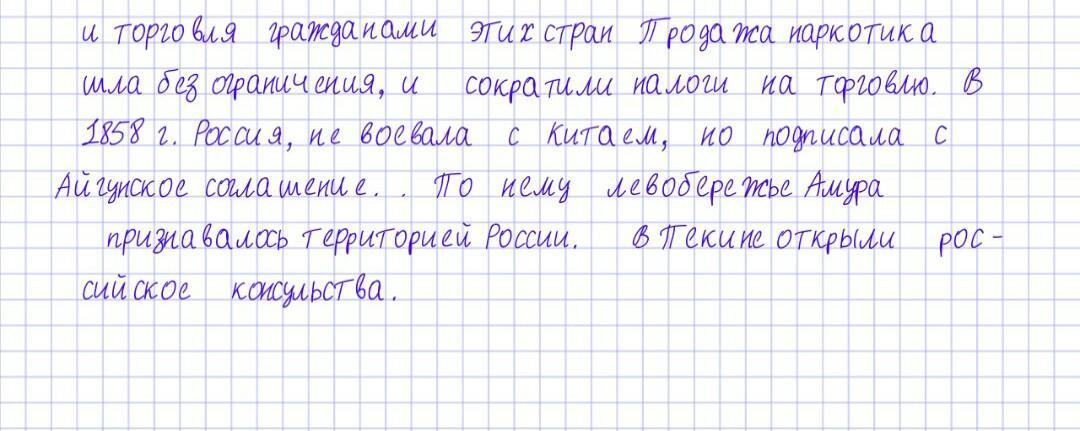 и торговля гражданами этих стран Продажа наркотика
шла без ограничения, и сократили налоги на торговлю. В
1858 г. Россия, не воевала с Китаем, но подписала с
Айгунское соглашение. . По нему левобережье Амура
признавалось территорией России. в Пекине открыли рос-
сийское консульства.